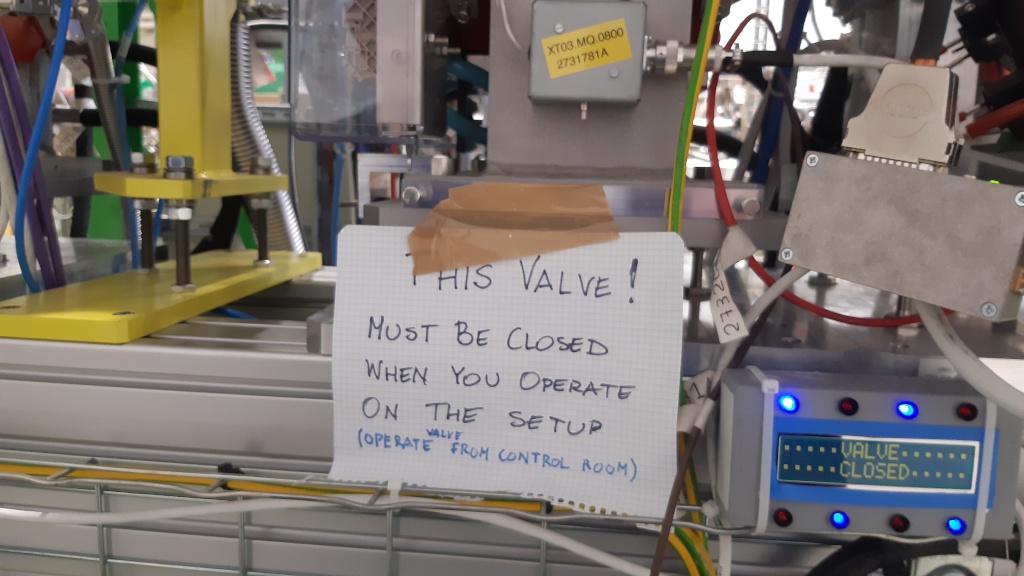 XT03.MQ.0800
2731781A
THIS VALVE!
MUST BE CLOSED
WHEN YOU OPERATE
ON THE SETUP
(OPERATE VALVE FROM CONTROL ROOM)
VALVE
CLOSED